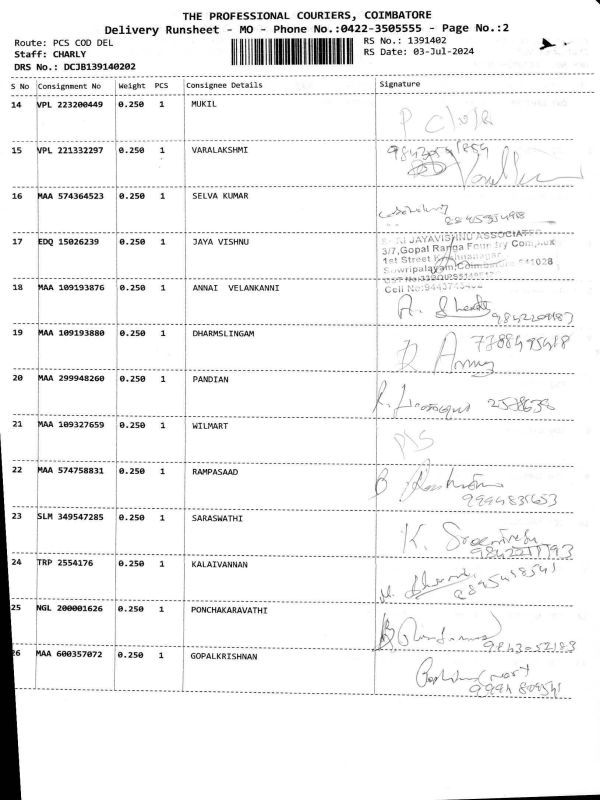 THE PROFESSIONAL COURIERS, COIMBATORE
Delivery Runsheet - MO - Phone No.:0422-3505555 - Page No.:2
Route: PCS COD DEL RS No.: 1391402
Staff: CHARLY RS Date: 03-Jul-2024
DRS No.: DCJB139140202
S No Consignment No Weight PCS Consignee Details Signature
14 VPL 223200449 0.250 1 MUKIL
15 VPL 221332297 0.250 1 VARALAKSHMI
16 MAA 574364523 0.250 1 SELVA KUMAR
17 EDQ 15026239 0.250 1 JAYA VISHNU
JAYAVISHNU ASSOCIATES
3/7,Gopal Ranga Foundry Complex
1st Street Krishnanagar
Sowripalayam,Coimbatore 641028
18 MAA 109193876 0.250 1 ANNAI VELANKANNI
Cell No:
19 MAA 109193880 0.250 1 DHARMSLINGAM
20 MAA 299948260 0.250 1 PANDIAN
2578638
21 MAA 109327659 0.250 1 WILMART
22 MAA 574758831 0.250 1 RAMPASAAD
23 SLM 349547285 0.250 1 SARASWATHI
K.
24 TRP 2554176 0.250 1 KALAIVANNAN
25 NGL 200001626 0.250 1 PONCHAKARAVATHI
9843052183
26 MAA 600357072 0.250 1 GOPALKRISHNAN